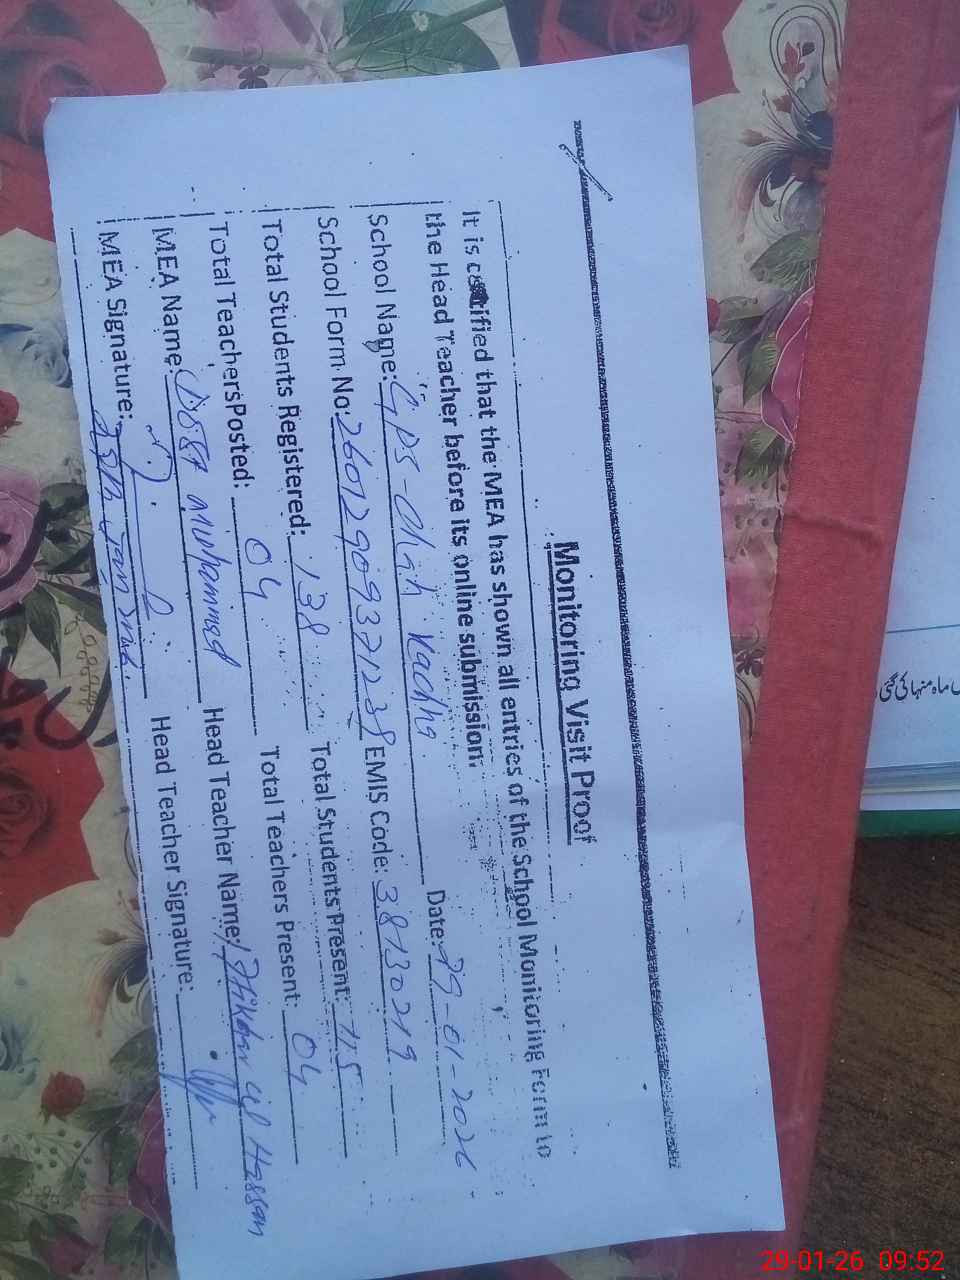 Monitoring Visit Proof
It is certified that the MEA has shown all entries of the School Monitoring Form to
the Head Teacher before its online submission.
School Name: GPS-Chah Kadha Date: 29-01-2026
School Form No: 26012909371238 EMIS Code: 38130219
Total Students Registered: 138 Total Students Present: 115
Total Teachers Posted: 04 Total Teachers Present: 04
MEA Name: Dost Muhammed Head Teacher Name: Iftikhar ul Hassan
MEA Signature: Head Teacher Signature:
ماہ منہا کی گئی
29-01-26 09:52